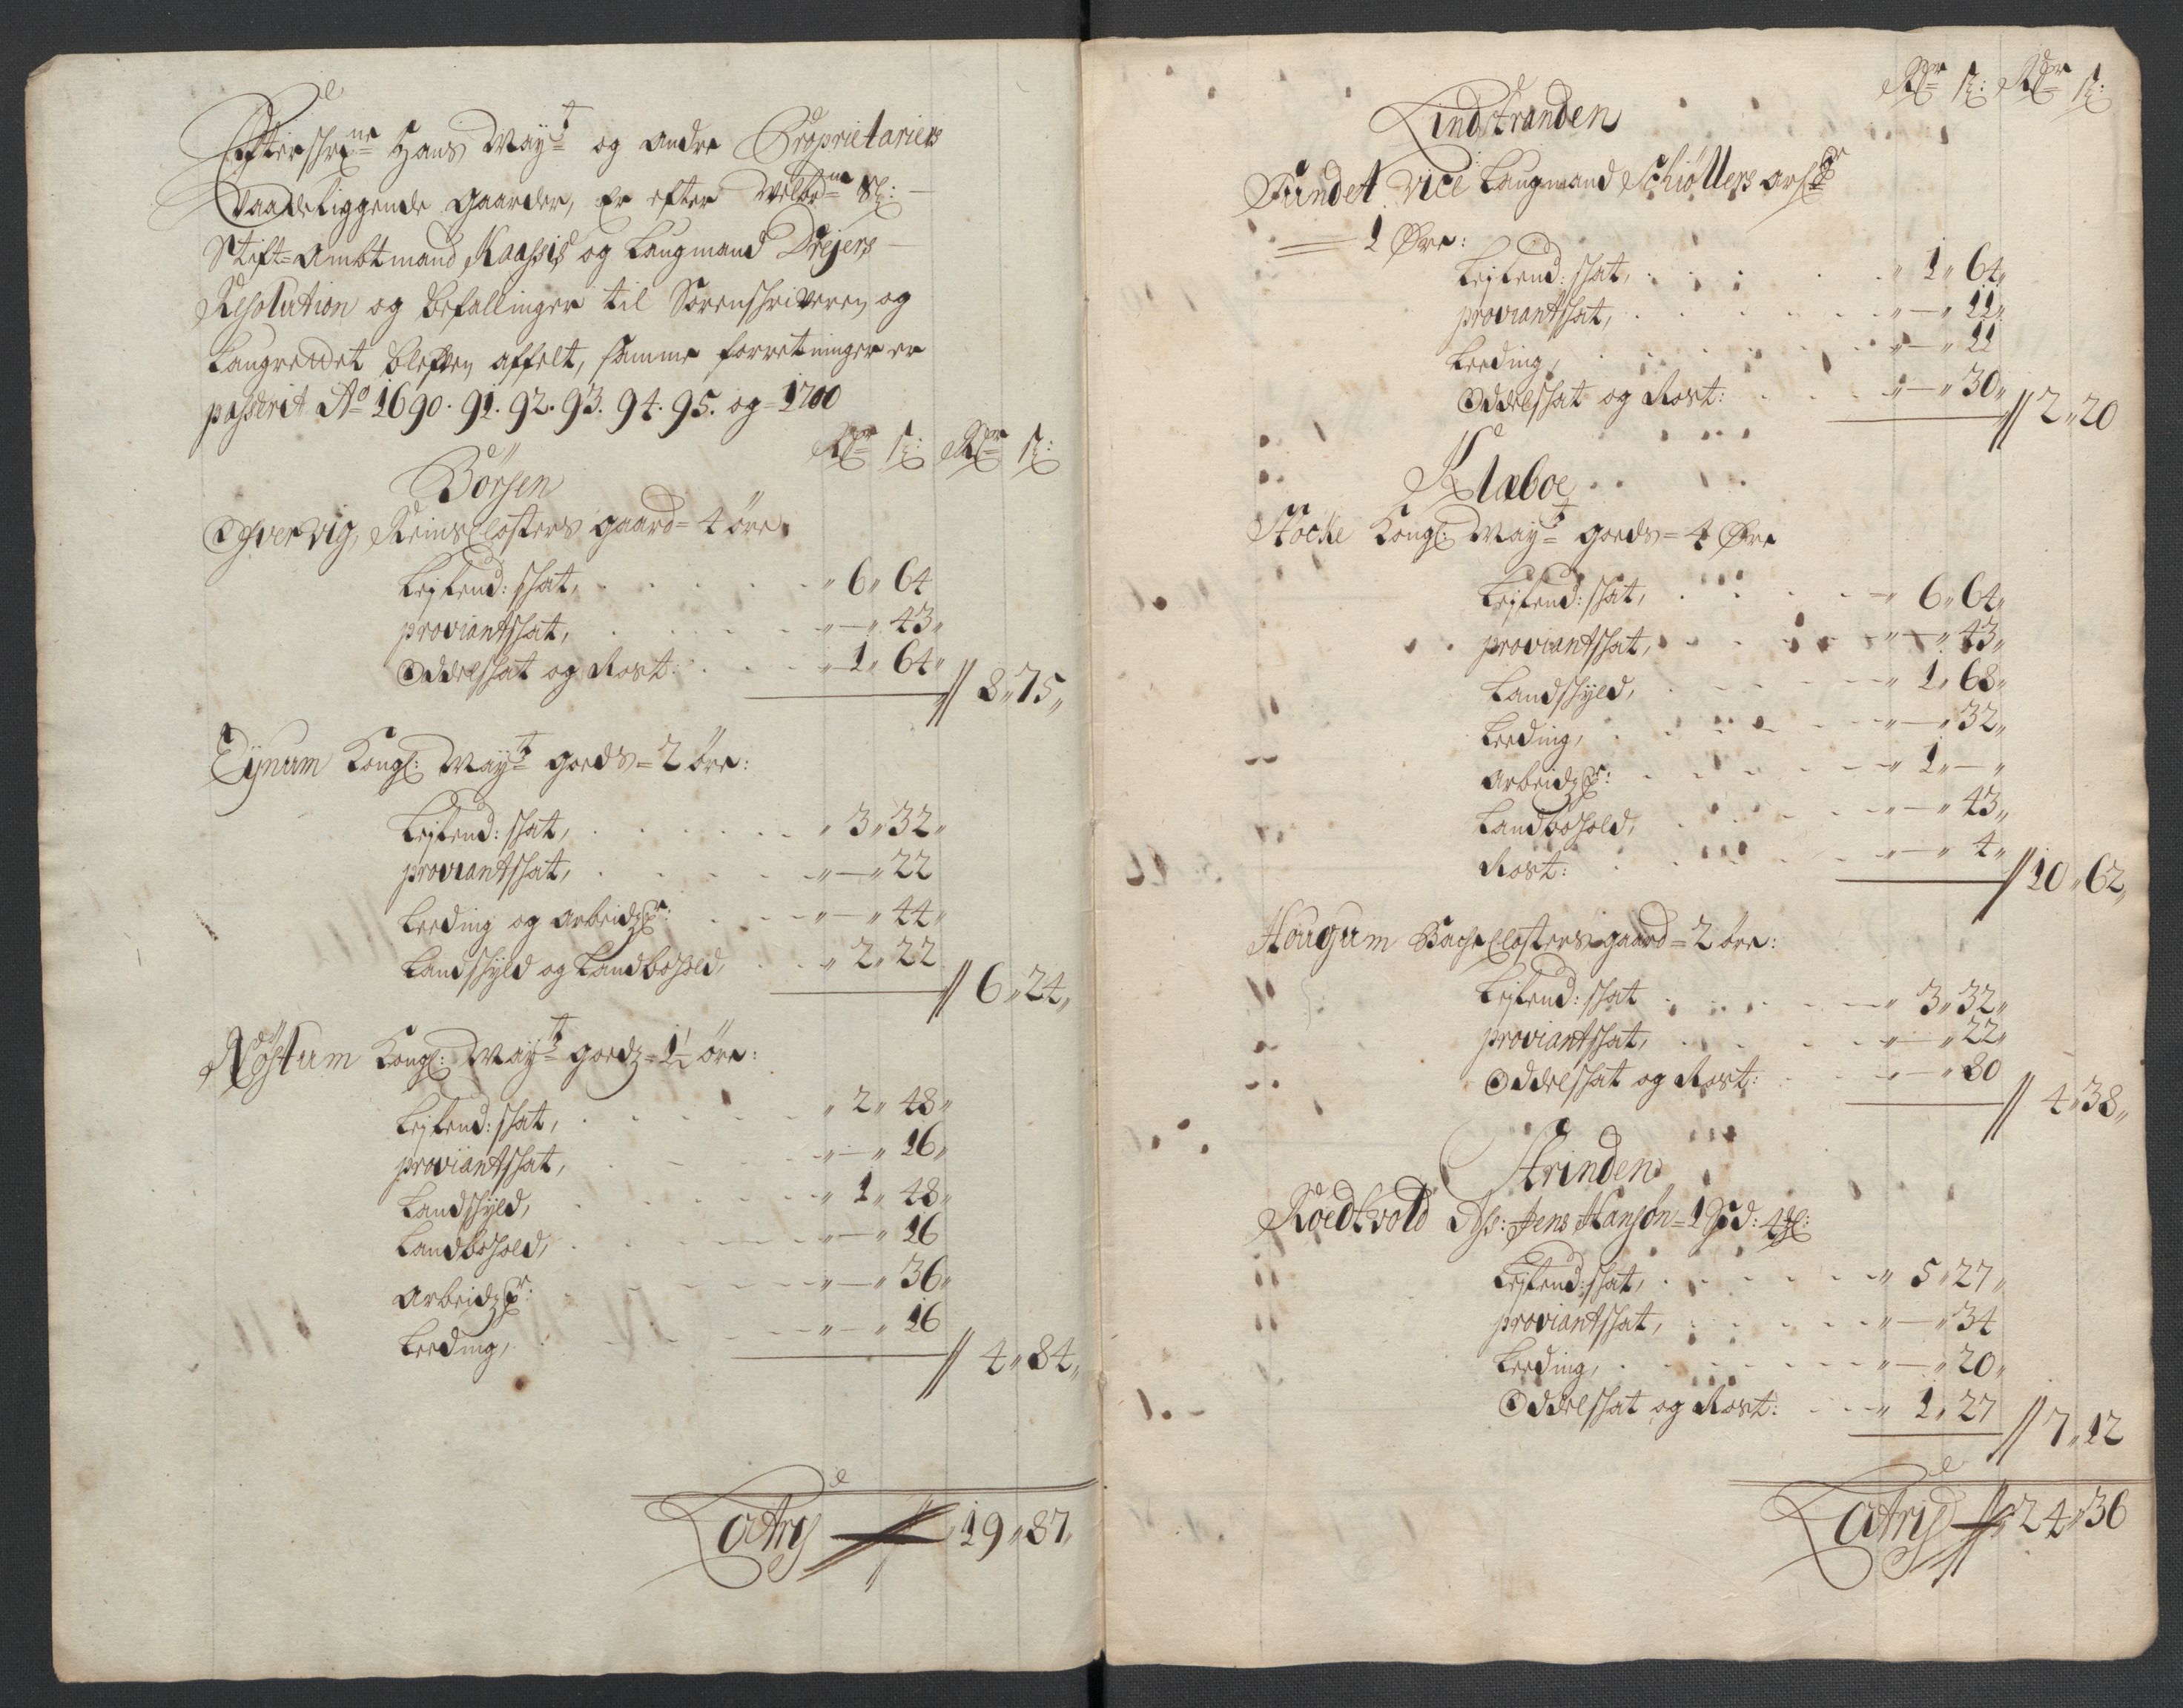 Efterskrne Hans Mayts og andre Proprietariers
Vaadeliggende gaarder, er efter Welbrne Sl:
Stift-Ambtmand Kaassis og Laugmand Drejers
Resolution og befallinger til Sorenskriveren og
Laugrendet blefven affelt, samme forretninger er
passerit Ao 1690. 91. 92. 93. 94. 95. og 1700
Rdr s: Rdr s:
Börsen
Ofvervig, Reins Closters gaard = 4 öre
Lejlend: skat, 6 " 64
proviantskat, " — " 43 "
Oddelskat og Rost: 1 " 64 " // 8 " 75 "
Eÿnum Kongl: Mayts goeds = 2 öre:
Lejlend: skat, " 3 " 32 "
proviantskat, " — " 22
Leeding og arbeidzpr: " — " 44 "
Landskyld og Landbohold, " 2 " 22 // 6 " 24 "
Röstum Kongl: Mayts goedz = 1½ öre:
Lejlend: skat, " 2 " 48 "
proviantskat, " — " 16 "
Landskyld, " 1 " 48 "
Landbohold, " — " 16
Arbeidzpr: " — " 36 "
Leeding, " — " 16 // 4 " 84 "
Latris 19 " 87 "
Rdr s: Rdr s:
Lindstranden
Sundet Vice Laugmand Schiøllers arf:
1 Øre:
Lejlend: skat, " 1 " 64 "
proviantskat, " — " 11 "
Leeding, " — " 11
Oddelskat og Rost: " — " 30 " // 2 " 20
Klæboe
Stocke Kongl: Mayts goeds = 4 Øre
Lejlend: skat, " 6 " 64 "
proviantskat, " — " 43 "
Landskyld, " 1 " 68 "
Leeding, " — " 32 "
Arbeidzpr: " 1 " — "
Landbohold, " — " 43 "
Rost: " — " 4 " // 10 " 62 "
Hougum Bache Closters gaard = 2 öre:
Lejlend: skat " 3 " 32 "
proviantskat, " — " 22 "
Oddelskat og Rost: " — " 80 // 4 " 38 "
Strinden
Roedtvold Ass: Jens Hansøn = 1 Spd:
Lejlend: skat, " 5 " 27 "
proviantskat, " — " 34
Leeding, " — " 20 "
Oddelskat og Rost: " 1 " 27 // 7 " 12
Latris 24 " 36